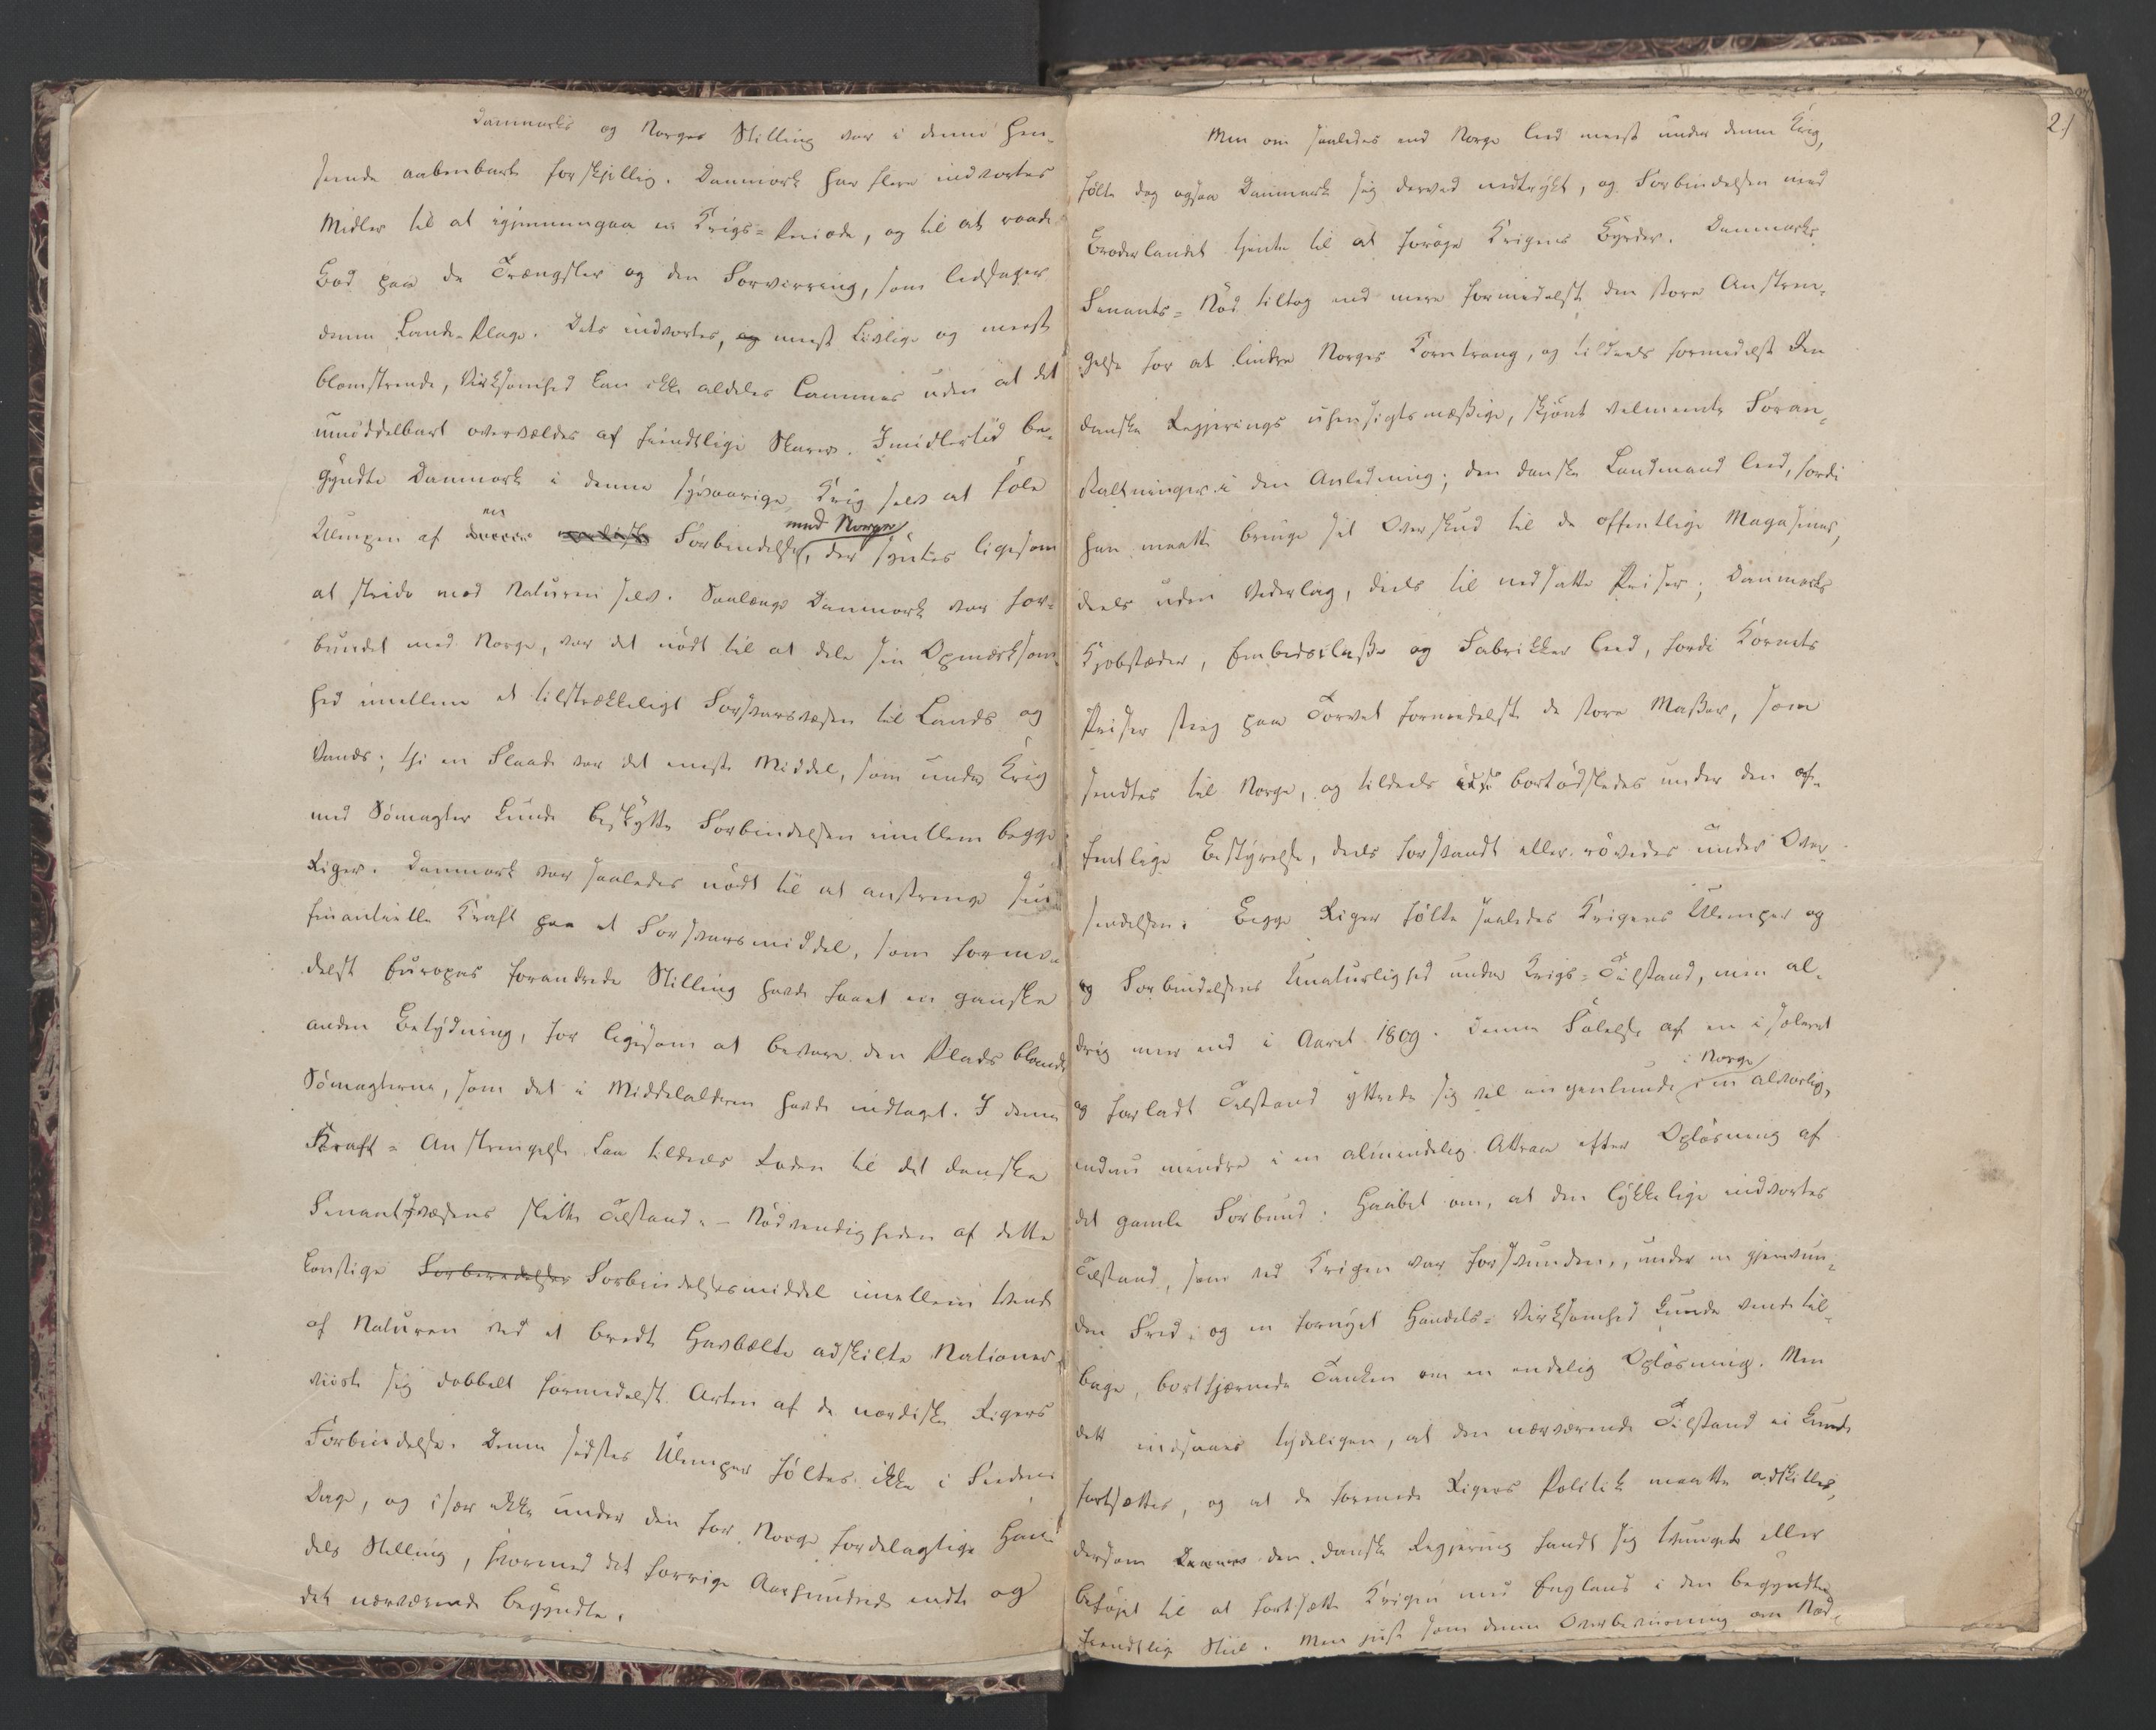 Danmarks og Norges Stilling var i denne Hen-
seende aabenbart forskjellig. Danmark har flere indvortes
Midler til at igjennemgaa en Krigs-Periode, og til at raade
Bod paa de Trængsler og den Forvirring, som ledsager
denne Lande-Plage. Dets indvortes, og meest Livlige og meest
blomstrende, Virksomhed kan ikke aldeles lammes uden at det
umiddelbart overvældes af fiendtlige Skarer. Imidlertid be-
gyndte Danmark i denne syvaarige Krig selv at føle
Ulempen af en Forbindelse med Norge, der syntes ligesom
at stride mod Naturen selv. Saalænge Danmark var for-
bundet med Norge, var det nødt til at dele sin Opmærksom-
hed imellem et tilstrækkeligt Forsvarsvæsen til Lands og
Vands; thi en Flaade var det eneste Middel, som under Krig
med Sömagter kunde beskytte Forbindelsen imellem begge
Riger. Danmark var saaledes nödt til at anstrenge sin
finantielle Kraft paa et Forsvarsmiddel, som forme-
delst Europas forandrede Stilling havde faaet en ganske
anden Betydning, for ligesom at bevare den Plads blandt
Sömagterne, som det i Middelalderen havde indtaget. I denne
Kraft-Anstrengelse laa tildeels Roden til det danske
Finantsvæsens slette Tilstand. – Nödvendigheden af dette
konstige Forberedelses Forbindelsesmiddel imellem tvende
af Naturen ved et bredt Havbælte adskilte Nationer
viiste sig dobbelt formedelst Arten af de nordiske Rigers
Forbindelse. Denne sidstes Ulemper föltes ikke i Fredens
Dage, og især ikke under den for Norge fordelagtige Han-
dels Stilling, hvormed det forrige Aarhundrede endte og
det nærværende begyndte.
2.)
Men om saaledes end Norge leed meest under denne Krig,
fölte dog ogsaa Danmark sig derved nedtrykt, og Forbindelsen med
Broderlandet tjente til at foröge Krigens Byrder. Danmarks
Finants-Nöd tiltog end mere formedelst den store Anstren-
gelse for at lindre Norges Korntrang, og tildeels formedelst den
danske Regjerings uhensigtsmæssige, skjönt velmeente Foran-
staltninger i den Anledning; den danske Landmand leed, fordi
han maatte bringe sit Overskud til de offentlige Magasiner,
deels uden Vederlag, deels til nedsatte Priser; Danmarks
Kjøbstæder, Embedsklasse og Fabrikker leed, fordi Kornets
Priser steeg paa Torvet formedelst de store Masser, som
sendtes til Norge, og tildeels bortødsledes under den of-
fentlige Bestyrelse, deels forsvandt eller rövedes under Over-
sendelsen. Begge Riger fölte saaledes Krigens Ulemper og
og Forbindelsens Unaturlighed under Krigs-Tilstand, men al-
drig mere end i Aaret 1809. Denne Fölelse af en isoleret
og forladt Tilstand yttrede sig vel ingenlunde i Norge i en alvorlig,
endnu mindre i en almindelig Attraa efter Oplösning af
det gamle Forbund. Haabet om, at den lykkelige indvortes
Tilstand, som ved Krigen var forsvunden, under en gjenvun-
den Fred, og en fornyet Handels-Virksomhed kunde vende til-
bage, bortfjærnede Tanken om en endelig Oplösning. Men
dett indsaaes tydeligen, at den nærværende Tilstand ei kunde
fortsættes, og at de forenede Rigers Politik maatte adskilles,
dersom den danske Regjering fandt sig tvungen eller
beföjet til at fortsætte Krigen med England i den begyndte
fiendtlig Stiil. Men just som denne Overbeviisning om Nöd-